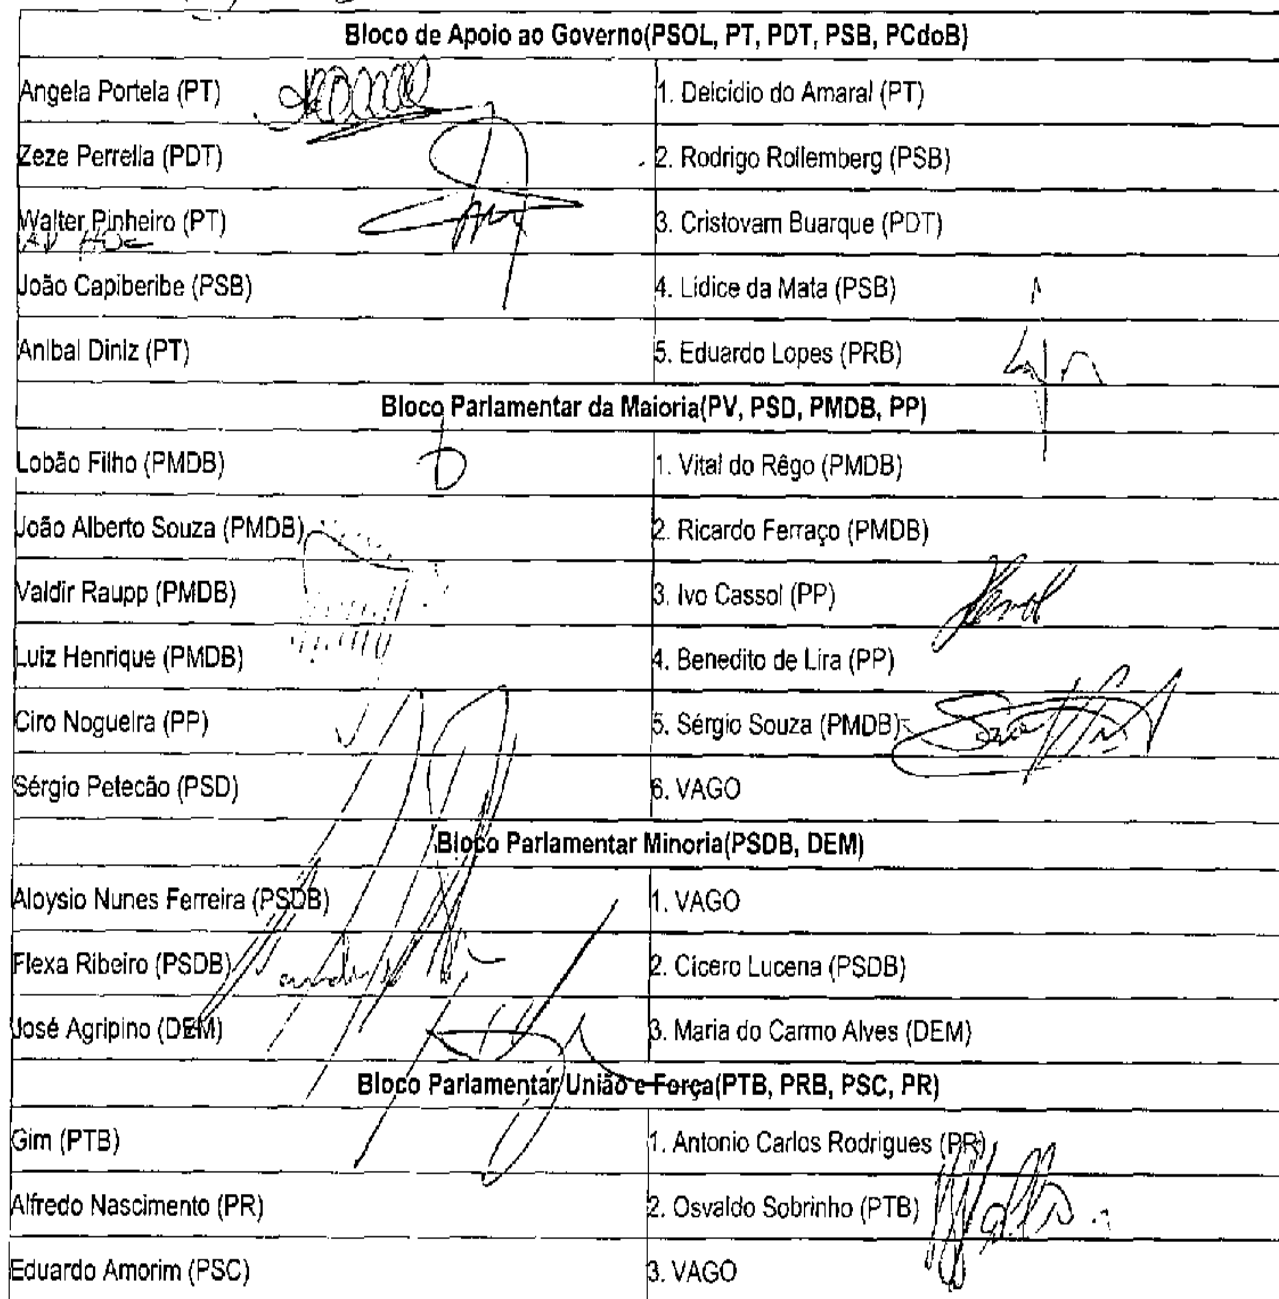 Bloco de Apoio ao Governo(PSOL, PT, PDT, PSB, PCdoB)
Angela Portela (PT) 1. Delcídio do Amaral (PT)
Zeze Perrella (PDT) 2. Rodrigo Rollemberg (PSB)
Walter Pinheiro (PT) 3. Cristovam Buarque (PDT)
AD HOC
João Capiberibe (PSB) 4. Lídice da Mata (PSB)
Anibal Diniz (PT) 5. Eduardo Lopes (PRB)
Bloco Parlamentar da Maioria(PV, PSD, PMDB, PP)
Lobão Filho (PMDB) 1. Vital do Rêgo (PMDB)
João Alberto Souza (PMDB) 2. Ricardo Ferraço (PMDB)
Valdir Raupp (PMDB) 3. Ivo Cassol (PP)
Luiz Henrique (PMDB) 4. Benedito de Lira (PP)
Ciro Nogueira (PP) 5. Sérgio Souza (PMDB)
Sérgio Petecão (PSD) 6. VAGO
Bloco Parlamentar Minoria(PSDB, DEM)
Aloysio Nunes Ferreira (PSDB) 1. VAGO
Flexa Ribeiro (PSDB) 2. Cícero Lucena (PSDB)
José Agripino (DEM) 3. Maria do Carmo Alves (DEM)
Bloco Parlamentar União e Força(PTB, PRB, PSC, PR)
Gim (PTB) 1. Antonio Carlos Rodrigues (PR)
Alfredo Nascimento (PR) 2. Osvaldo Sobrinho (PTB)
Eduardo Amorim (PSC) 3. VAGO